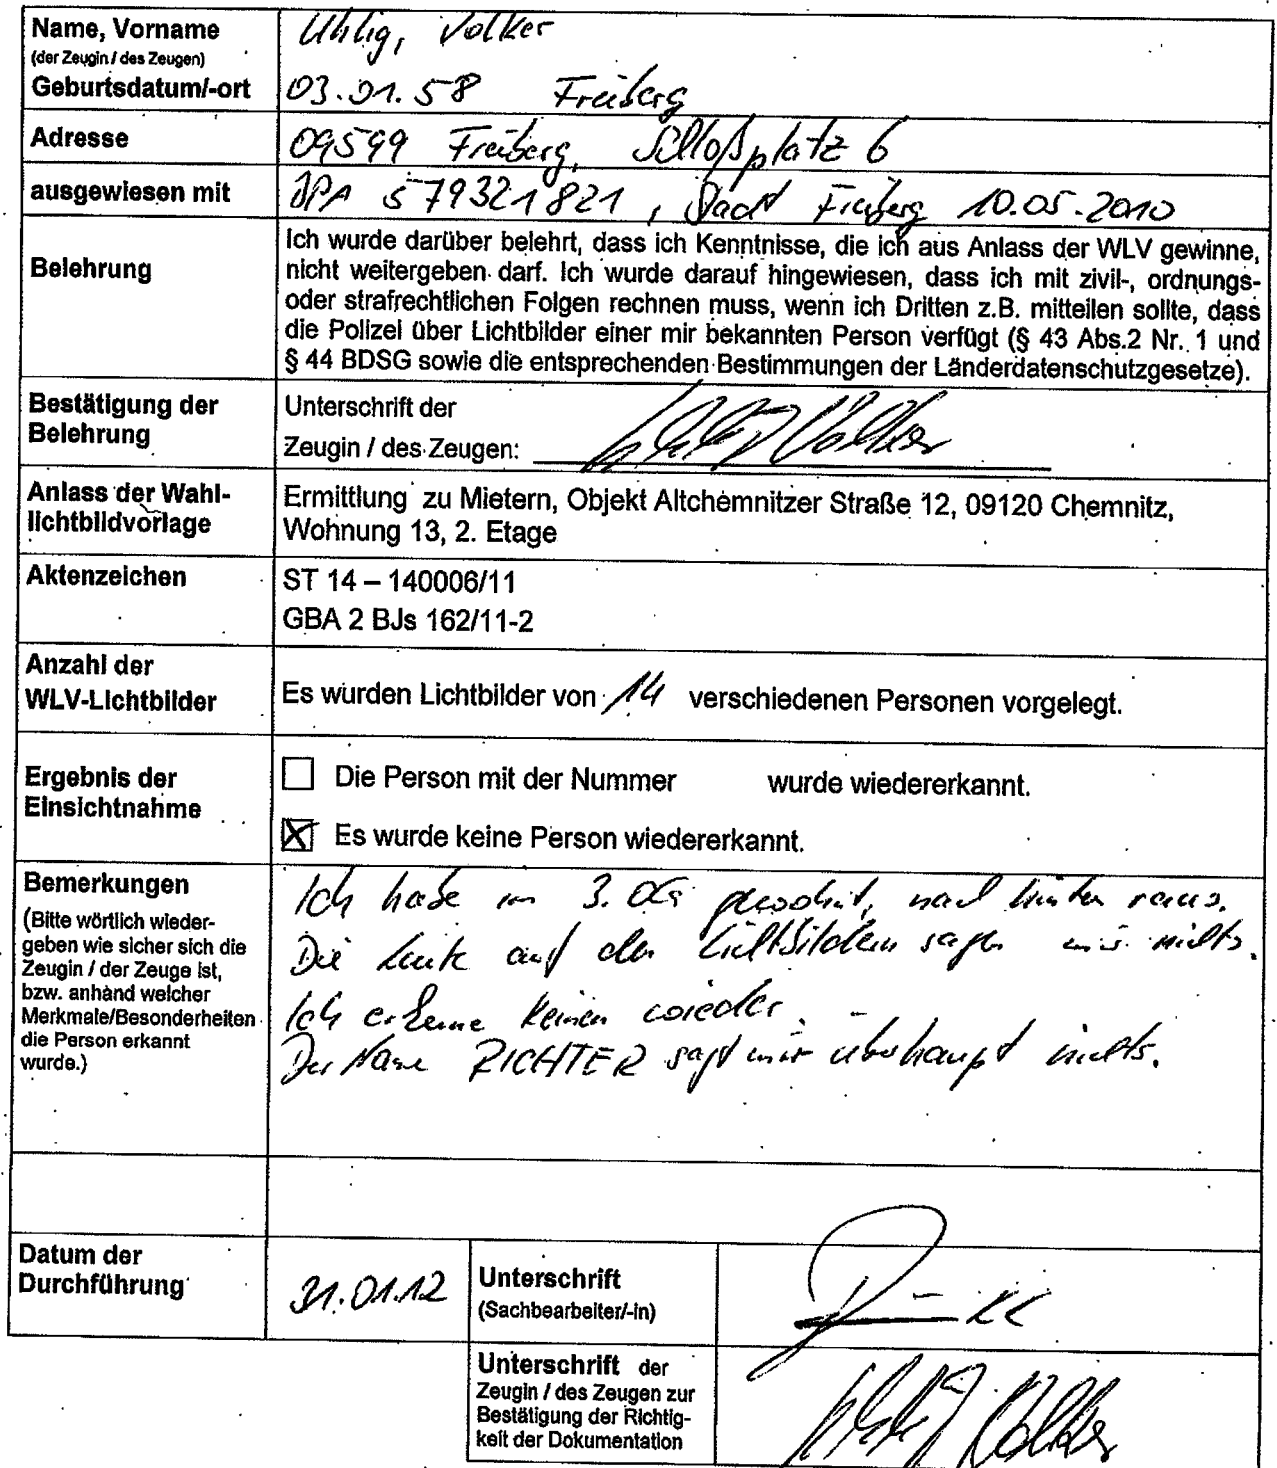 Name, Vorname
(der Zeugin / des Zeugen)
Uhlig, Volker
Geburtsdatum/-ort
03.01.58 Freiberg
Adresse
09599 Freiberg, Schloßplatz 6
ausgewiesen mit
BPA 579321821, Stadt Freiberg 10.05.2010
Belehrung
Ich wurde darüber belehrt, dass ich Kenntnisse, die ich aus Anlass der WLV gewinne,
nicht weitergeben darf. Ich wurde darauf hingewiesen, dass ich mit zivil-, ordnungs-
oder strafrechtlichen Folgen rechnen muss, wenn ich Dritten z.B. mitteilen sollte, dass
die Polizei über Lichtbilder einer mir bekannten Person verfügt (§ 43 Abs.2 Nr. 1 und
§ 44 BDSG sowie die entsprechenden Bestimmungen der Länderdatenschutzgesetze).
Bestätigung der
Belehrung
Unterschrift der
Zeugin / des Zeugen: Uhlig Volker
Anlass der Wahl-
lichtbildvorlage
Ermittlung zu Mietern, Objekt Altchemnitzer Straße 12, 09120 Chemnitz,
Wohnung 13, 2. Etage
Aktenzeichen
ST 14 – 140006/11
GBA 2 BJs 162/11-2
Anzahl der
WLV-Lichtbilder
Es wurden Lichtbilder von 14 verschiedenen Personen vorgelegt.
Ergebnis der
Einsichtnahme
Die Person mit der Nummer wurde wiedererkannt.
Es wurde keine Person wiedererkannt.
Bemerkungen
(Bitte wörtlich wieder-
geben wie sicher sich die
Zeugin / der Zeuge ist,
bzw. anhand welcher
Merkmale/Besonderheiten
die Person erkannt
wurde.)
Ich habe im 3. OG gewohnt, nach hinten raus.
Die Leute auf den Lichtbildern sagen mir nichts.
Ich erkenne keinen wieder.
Der Name RICHTER sagt mir überhaupt nichts.
Datum der
Durchführung
31.01.12
Unterschrift
(Sachbearbeiter/-in)
Unterschrift der
Zeugin / des Zeugen zur
Bestätigung der Richtig-
keit der Dokumentation
Uhlig Volker